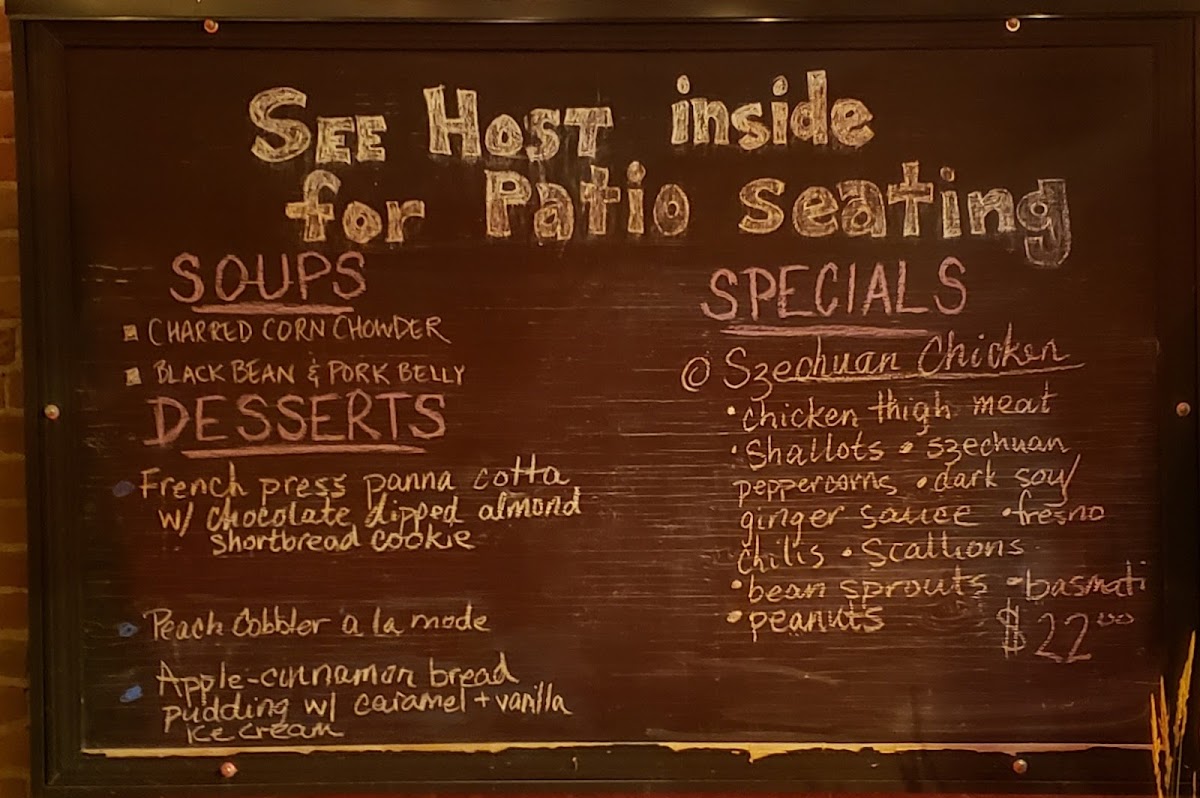 SEE HOST inside
for Patio seating
SOUPS
CHARRED CORN CHOWDER
BLACK BEAN & PORK BELLY
DESSERTS
French press panna cotta
w/ chocolate dipped almond
shortbread cookie
Peach Cobbler a la mode
Apple-cinnamon bread
pudding w/ caramel + vanilla
ice cream
SPECIALS
Szechuan Chicken
• chicken thigh meat
• Shallots • szechuan
peppercorns • dark soy/
ginger sauce • fresno
chilis • Scallions
• bean sprouts • basmati
• peanuts
$22.00